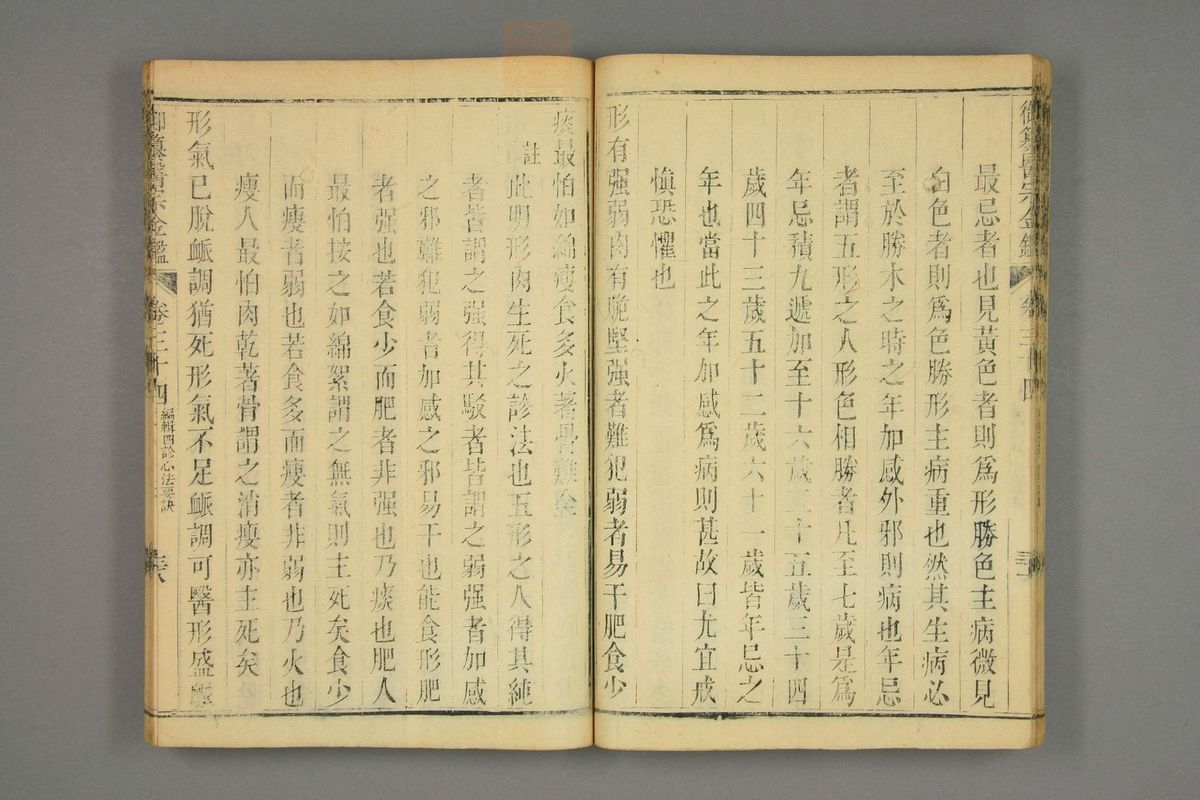 御纂醫宗金鑑 卷三十四
最忌者也見黃色者則爲形勝色主病微見
白色者則爲色勝形主病重也然其生病必
至於勝木之時之年加感外邪則病也年忌
者謂五形之人形色相勝者凡至七歲是爲
年忌積九遞加至十六歲二十五歲三十四
歲四十三歲五十二歲六十一歲皆年忌之
年也當此之年加感爲病則甚故曰尤宜戒
慎恐懼也
形有强弱肉有脆堅强者難犯弱者易干肥食少
痰最怕如綿瘦食多火著骨難全
註此明形肉生死之診法也五形之人得其純
者皆謂之强得其駁者皆謂之弱强者加感
之邪難犯弱者加感之邪易干也能食形肥
者强也若食少而肥者非强也乃痰也肥人
最怕按之如綿絮謂之無氣則主死矣食少
而瘦者弱也若食多而瘦者非弱也乃火也
瘦人最怕肉乾著骨謂之消瘦亦主死矣
形氣已脫脈調猶死形氣不足脈調可醫形盛脈
御纂醫宗金鑑 卷三十四 編輯四診心法要訣